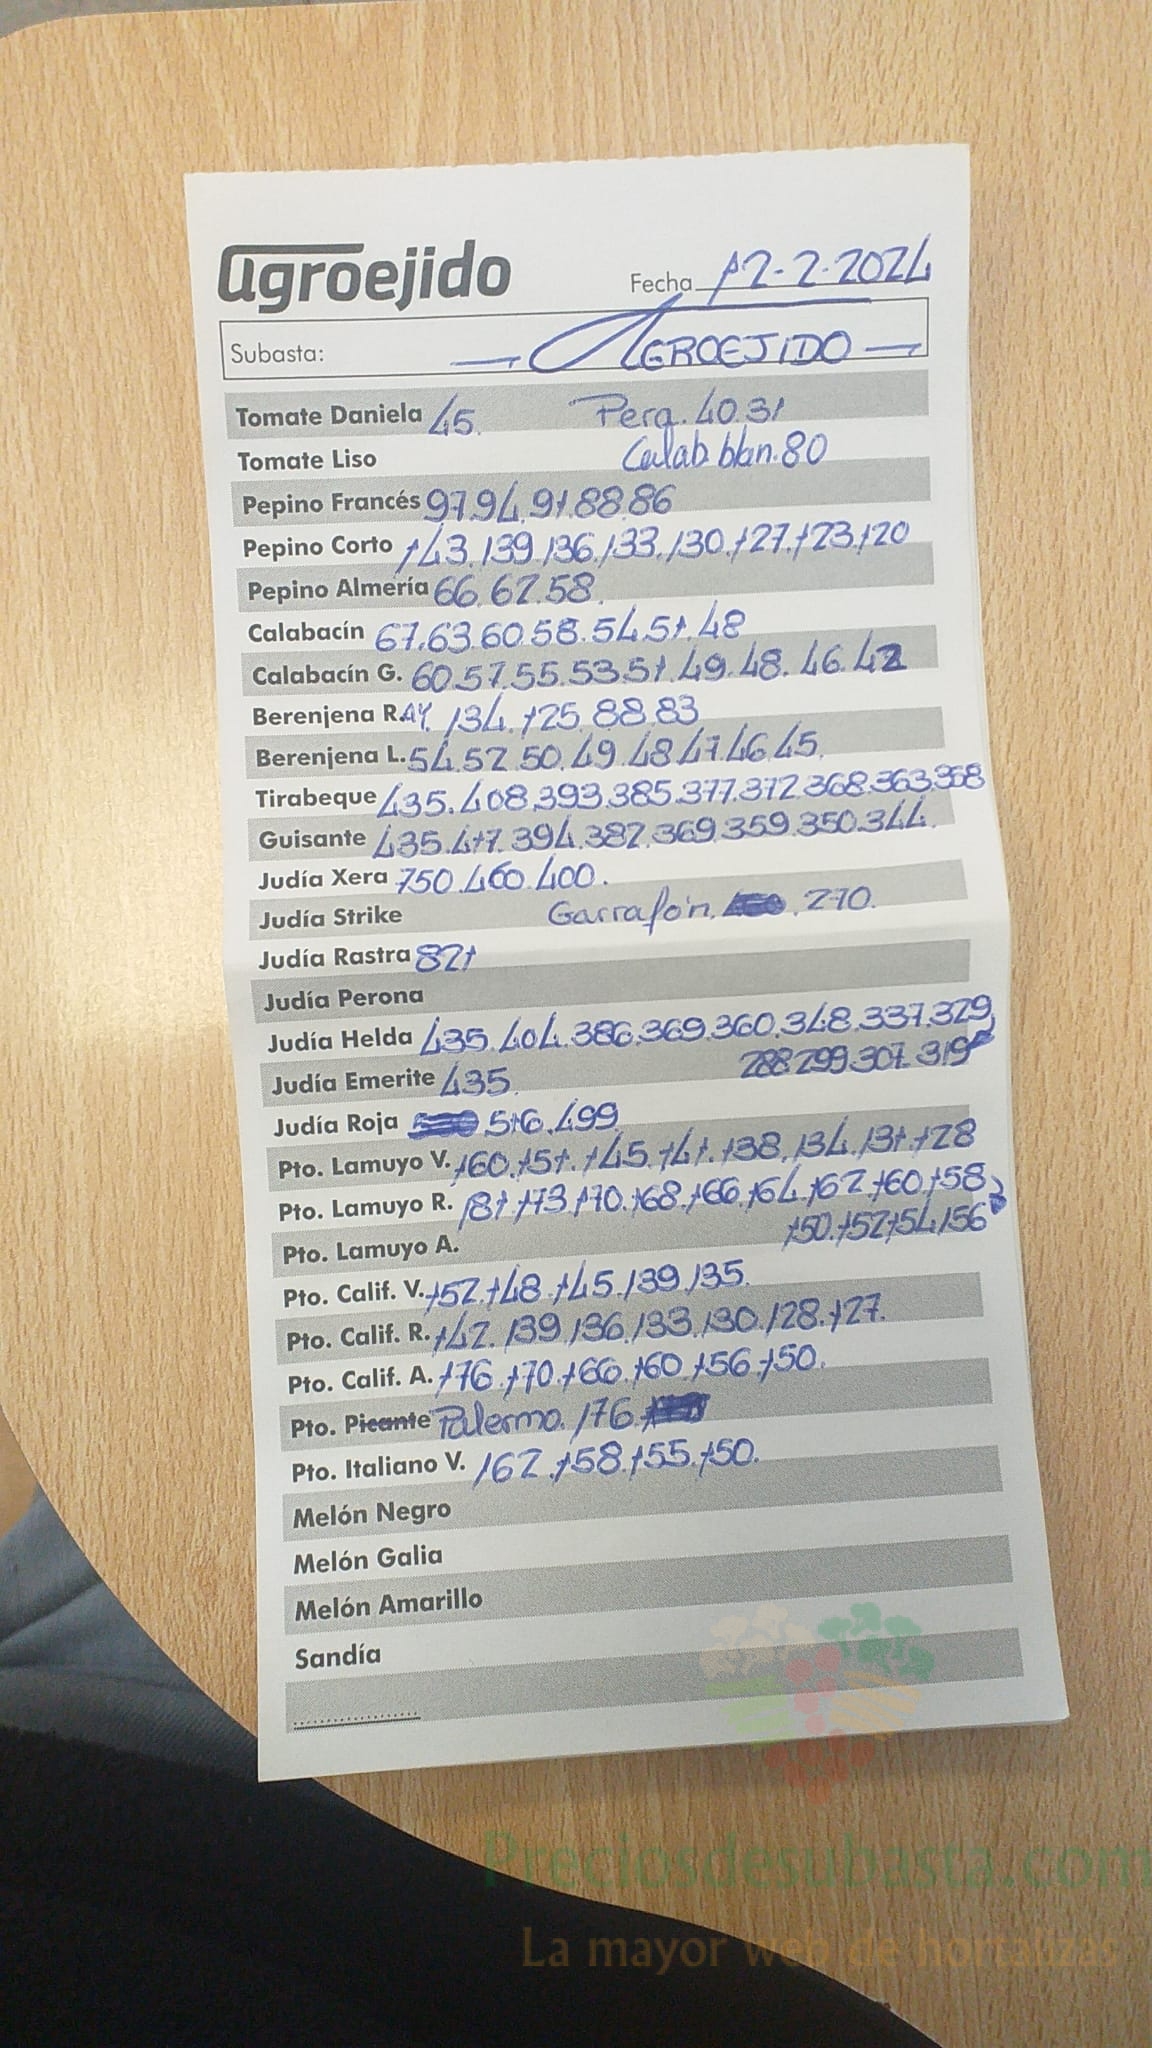 agroejido
Fecha 12-2-2024
Subasta: — AGROEJIDO —
Tomate Daniela 45. Pera. 40.31
Tomate Liso Calab. blan. 80
Pepino Francés 97.94.91.88.86
Pepino Corto 143.139.136.133.130.127.123.120
Pepino Almería 66.62.58.
Calabacín 67.63.60.58.54.51.48
Calabacín G. 60.57.55.53.51.49.48.46.42
Berenjena R.AY. 134.125.88.83
Berenjena L. 54.52.50.49.48.47.46.45.
Tirabeque 435.408.393.385.377.372.368.363.358
Guisante 435.417.394.382.369.359.350.344.
Judía Xera 750.460.400.
Judía Strike Garrafón. 270.
Judía Rastra 821
Judía Perona
Judía Helda 435.404.386.369.360.348.337.329
288.299.307.319
Judía Emerite 435.
Judía Roja 516.499
Pto. Lamuyo V. 160.151.145.141.138.134.131.128
Pto. Lamuyo R. 181.173.170.168.166.164.162.160.158
150.152.154.156
Pto. Lamuyo A.
Pto. Calif. V. 152.148.145.139.135.
Pto. Calif. R. 142.139.136.133.130.128.127.
Pto. Calif. A. 176.170.166.160.156.150.
Pto. Picante Palermo. 176.
Pto. Italiano V. 162.158.155.150.
Melón Negro
Melón Galia
Melón Amarillo
Sandía
Preciosdesubasta.com
La mayor web de hortalizas